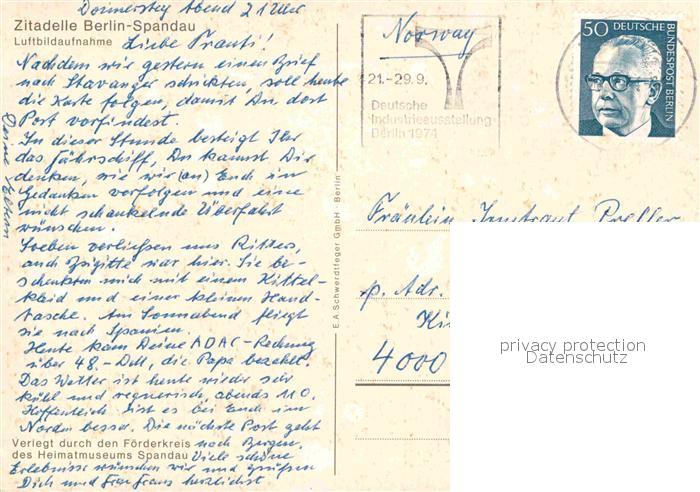 Donnerstag Abend 21 Uhr
Zitadelle Berlin-Spandau
Luftbildaufnahme
Liebe Trauti!
Nachdem wir gestern einen Brief
nach Stavanger schickten, soll heute
die Karte folgen, damit Du dort
Post vorfindest.
In dieser Stunde besteigt Ihr
das Fährschiff, Du kannst Dir
denken, wie wir (an) Euch in
Gedanken verfolgen und eine
nicht schaukelnde Überfahrt
wünschen.
Soeben verliessen uns Ritters,
auch Brigitte war hier. Sie be-
schenkten mich mit einem Kittel-
kleid und einer kleinen Hand-
tasche. Am Sonnabend fliegt
sie nach Spanien.
Heute kam Deine ADAC-Rechnung
über 48.- DM, die Papa bezahlt.
Das Wetter ist heute wieder sehr
kühl und regnerisch, abends 11°.
Hoffentlich ist es bei Euch im
Norden besser. Die nächste Post geht
nach Bergen.
Verlegt durch den Förderkreis
des Heimatmuseums Spandau
Viele schöne
Erlebnisse wünschen wir und grüßen
Dich und herzlichst
Deine Eltern
E.A. Schwerdtfeger GmbH · Berlin
Norway
21.-29.9.
Deutsche
Industrieausstellung
Berlin 1974
50 DEUTSCHE
BUNDESPOST BERLIN
Fräulein Irmtraut Preller
p. Adr.
4000
privacy protection
Datenschutz